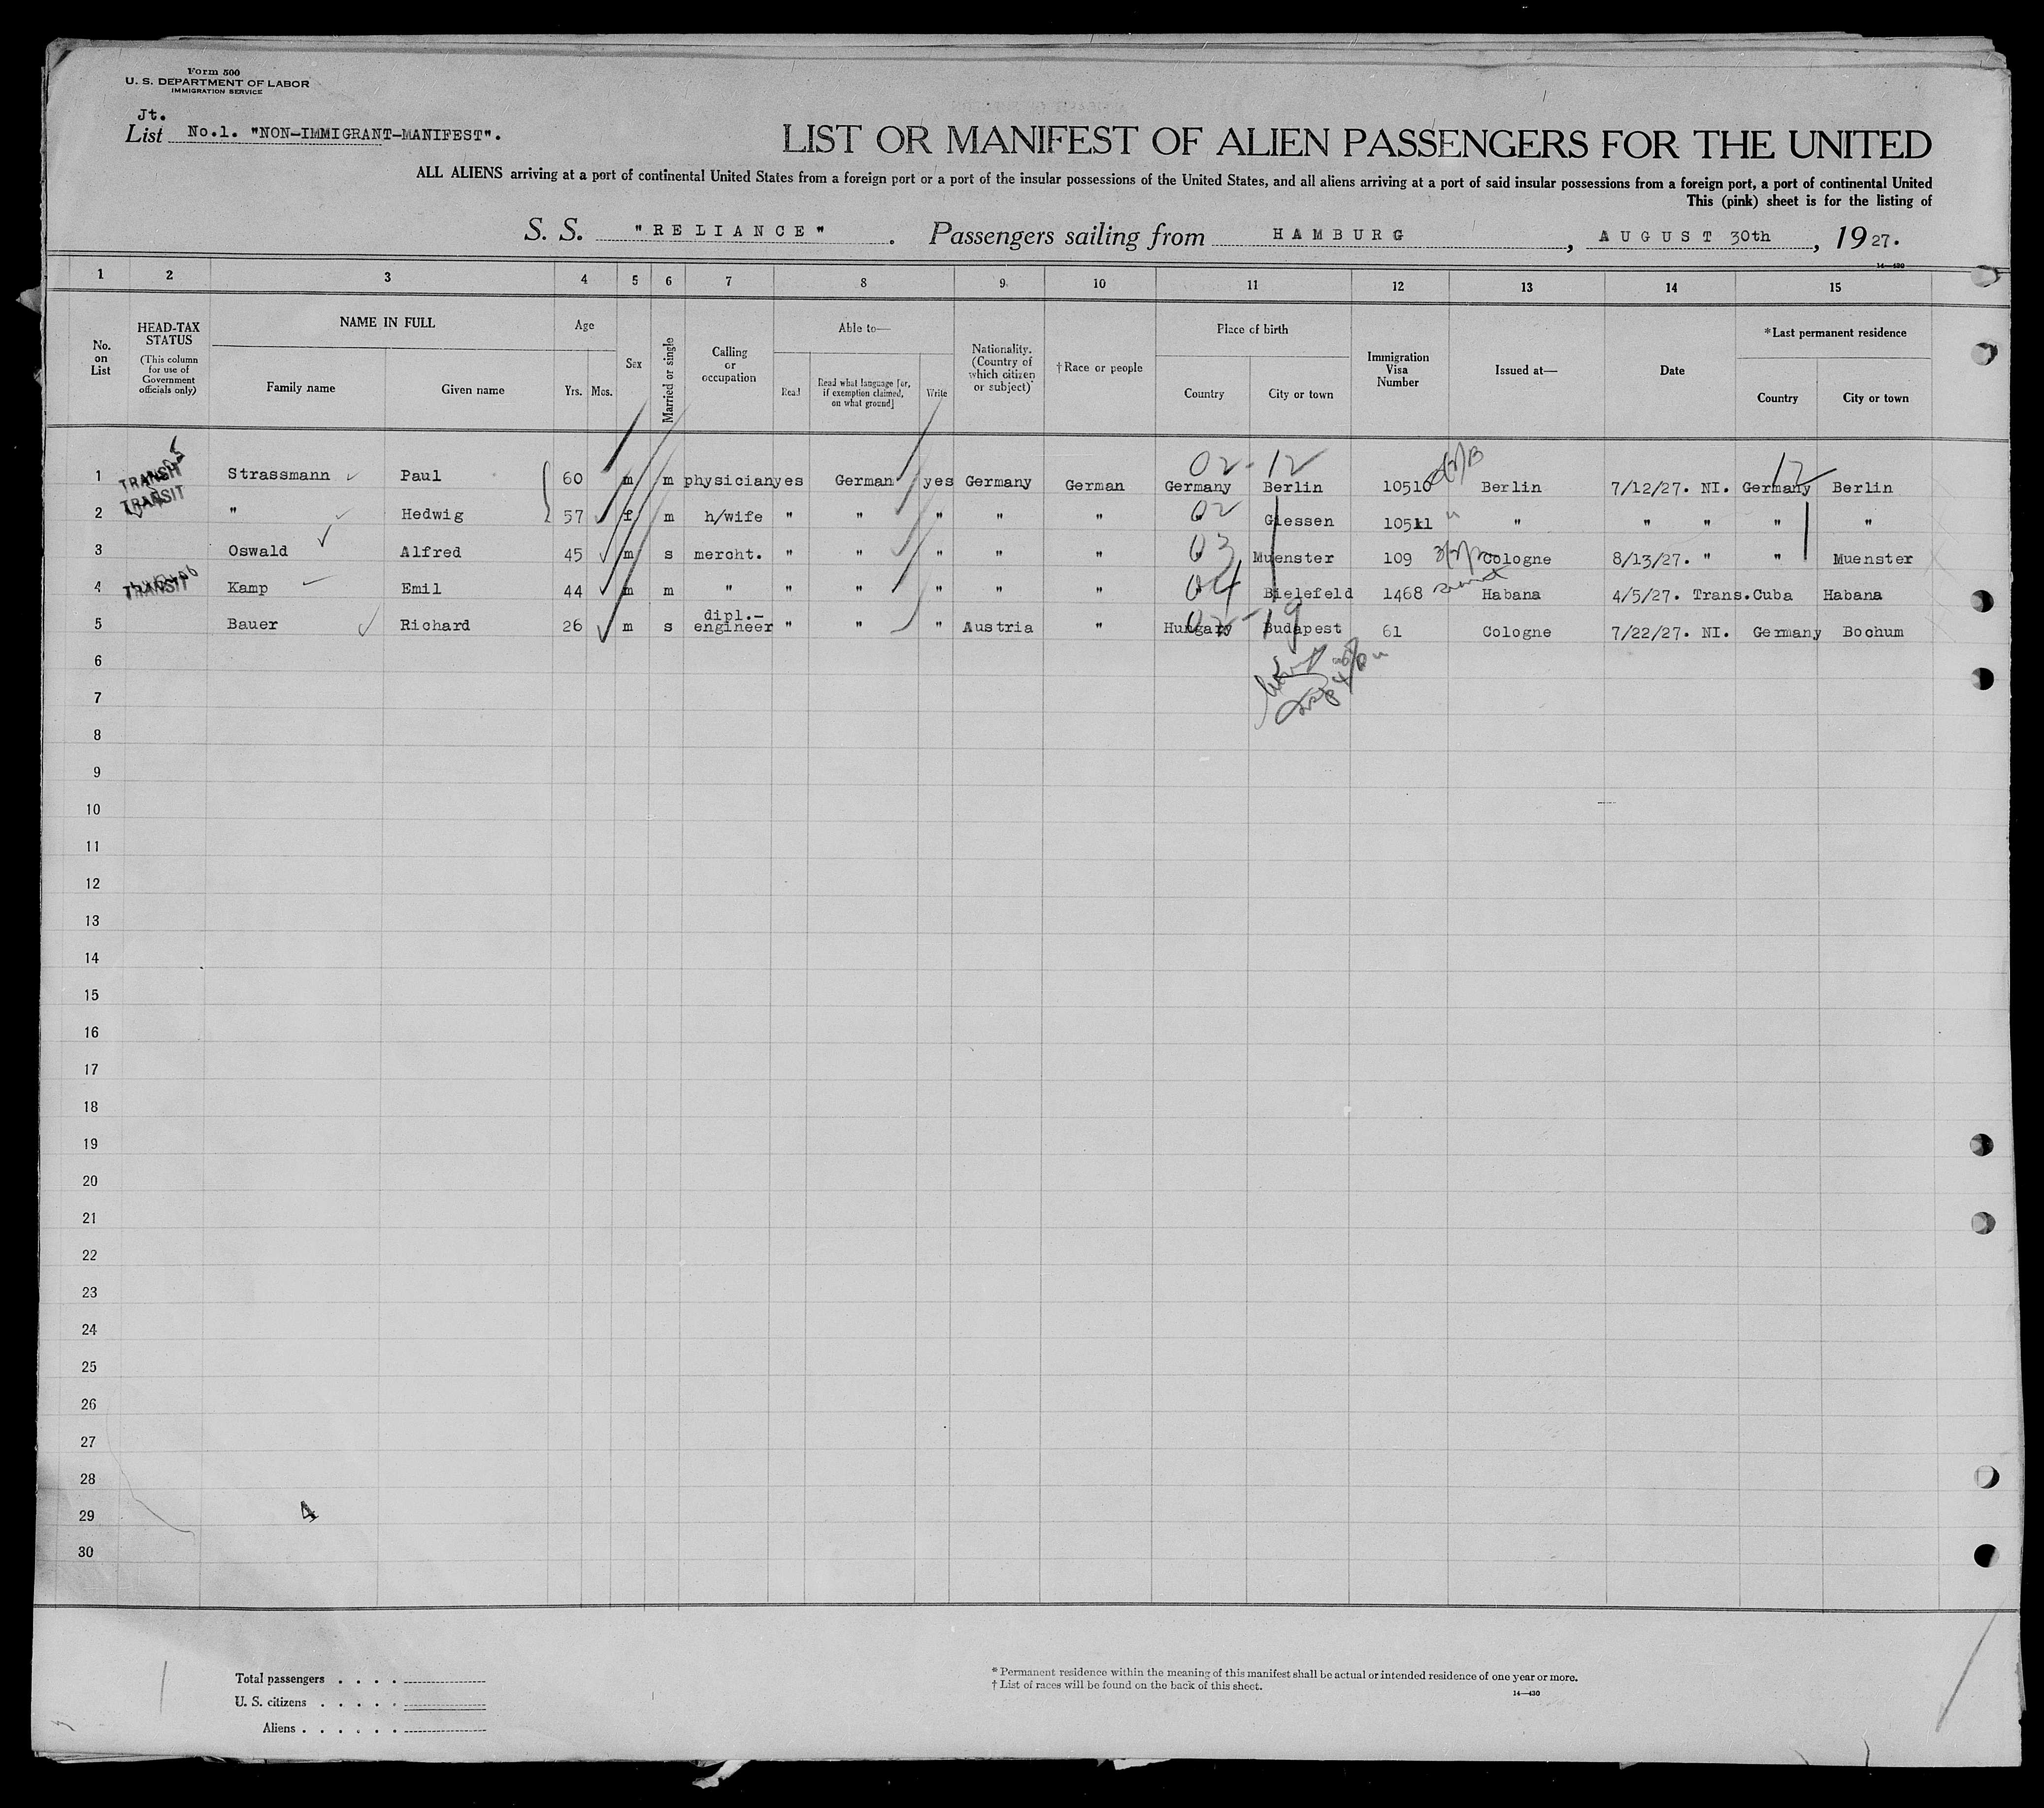 Form 500
U. S. DEPARTMENT OF LABOR
IMMIGRATION SERVICE
Jt.
List No.1. "NON-IMMIGRANT-MANIFEST".
LIST OR MANIFEST OF ALIEN PASSENGERS FOR THE UNITED
ALL ALIENS arriving at a port of continental United States from a foreign port or a port of the insular possessions of the United States, and all aliens arriving at a port of said insular possessions from a foreign port, a port of continental United
This (pink) sheet is for the listing of
S. S. "RELIANCE". Passengers sailing from HAMBURG, AUGUST 30th, 1927.
14—430
1 2 3 4 5 6 7 8 9 10 11 12 13 14 15
No. on List
HEAD-TAX STATUS
(This column for use of Government officials only)
NAME IN FULL
Family name Given name
Age
Yrs. Mos.
Sex
Married or single
Calling or occupation
Able to—
Read
Read what language [or, if exemption claimed, on what ground]
Write
Nationality. (Country of which citizen or subject)
†Race or people
Place of birth
Country City or town
Immigration Visa Number
Issued at—
Date
*Last permanent residence
Country City or town
02-12 12
1 TRANSIT Strassmann Paul 60 m m physician yes German yes Germany German Germany Berlin 10510 Berlin 7/12/27. NI. Germany Berlin
TRANSIT
2 " Hedwig 57 f m h/wife " " " " " 02 Giessen 10511 " " " " " "
3 Oswald Alfred 45 m s mercht. " " " " " 03 Muenster 109 Cologne 8/13/27. " " Muenster
4 TRANSIT Kamp Emil 44 m m " " " " " " 04 Bielefeld 1468 Habana 4/5/27. Trans. Cuba Habana
5 Bauer Richard 26 m s dipl.-engineer " " " Austria " Hungary Budapest 61 Cologne 7/22/27. NI. Germany Bochum
02-19
6
7
8
9
10
11
12
13
14
15
16
17
18
19
20
21
22
23
24
25
26
27
28
29
4
30
Total passengers . . . .
U. S. citizens . . . . .
Aliens . . . . . .
* Permanent residence within the meaning of this manifest shall be actual or intended residence of one year or more.
† List of races will be found on the back of this sheet.
14—430